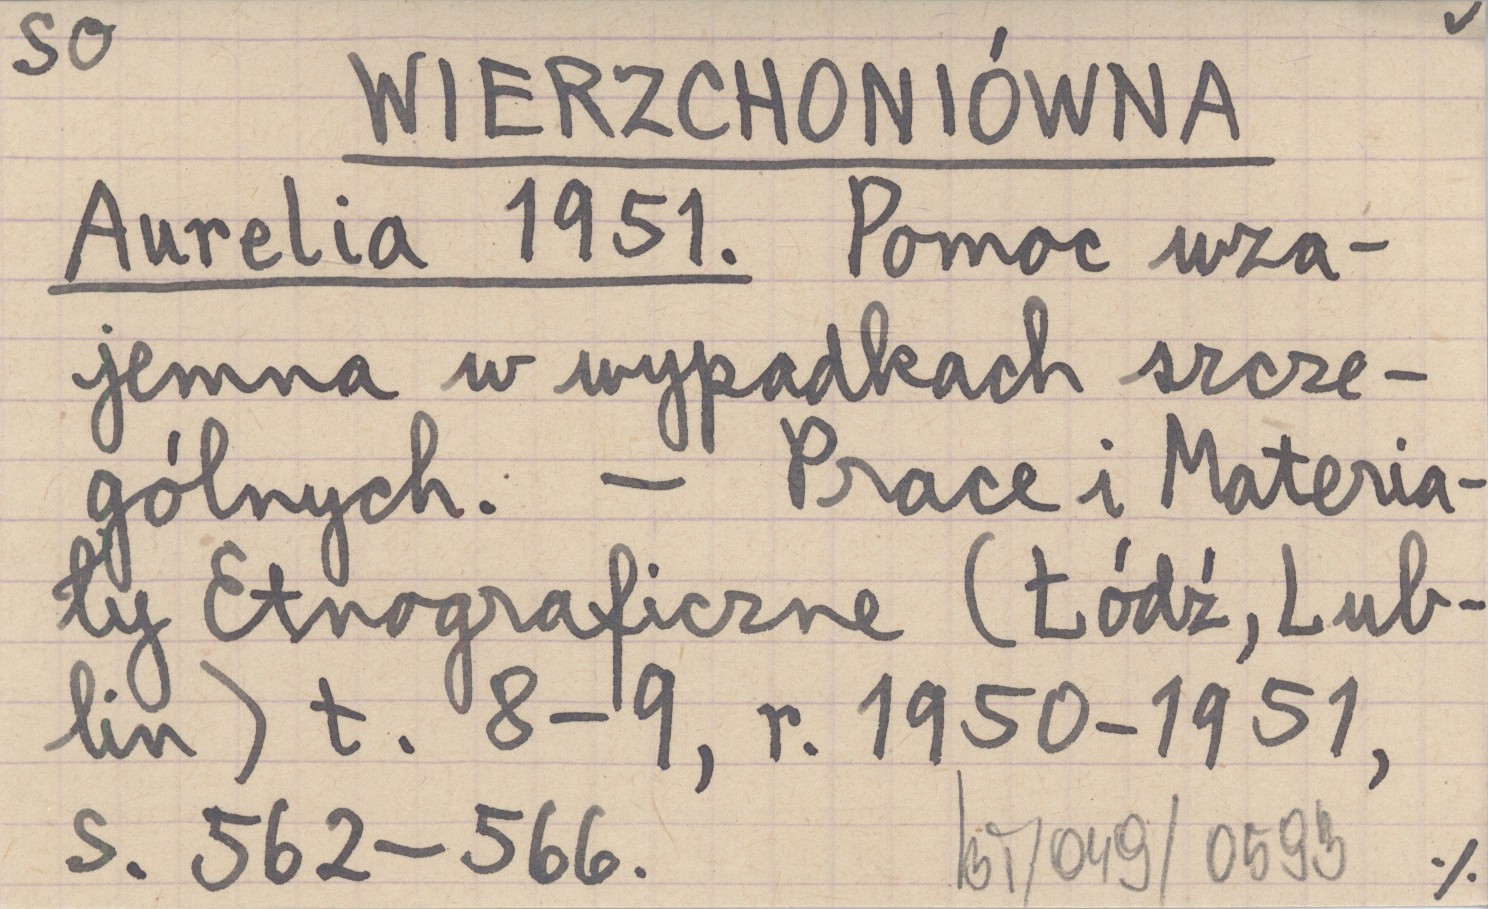 SO
WIERZCHONIÓWNA
Aurelia 1951. Pomoc wza-
jemna w wypadkach szcze-
gólnych. — Prace i Materia-
ły Etnograficzne (Łódź, Lub-
lin) t. 8-9, r. 1950-1951,
s. 562-566.
/049/ 0593
./.